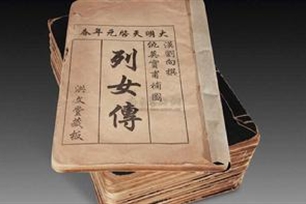 大明天啓元年春
漢劉向撰
仇英實甫補圖
列女傳
洪文堂藏板